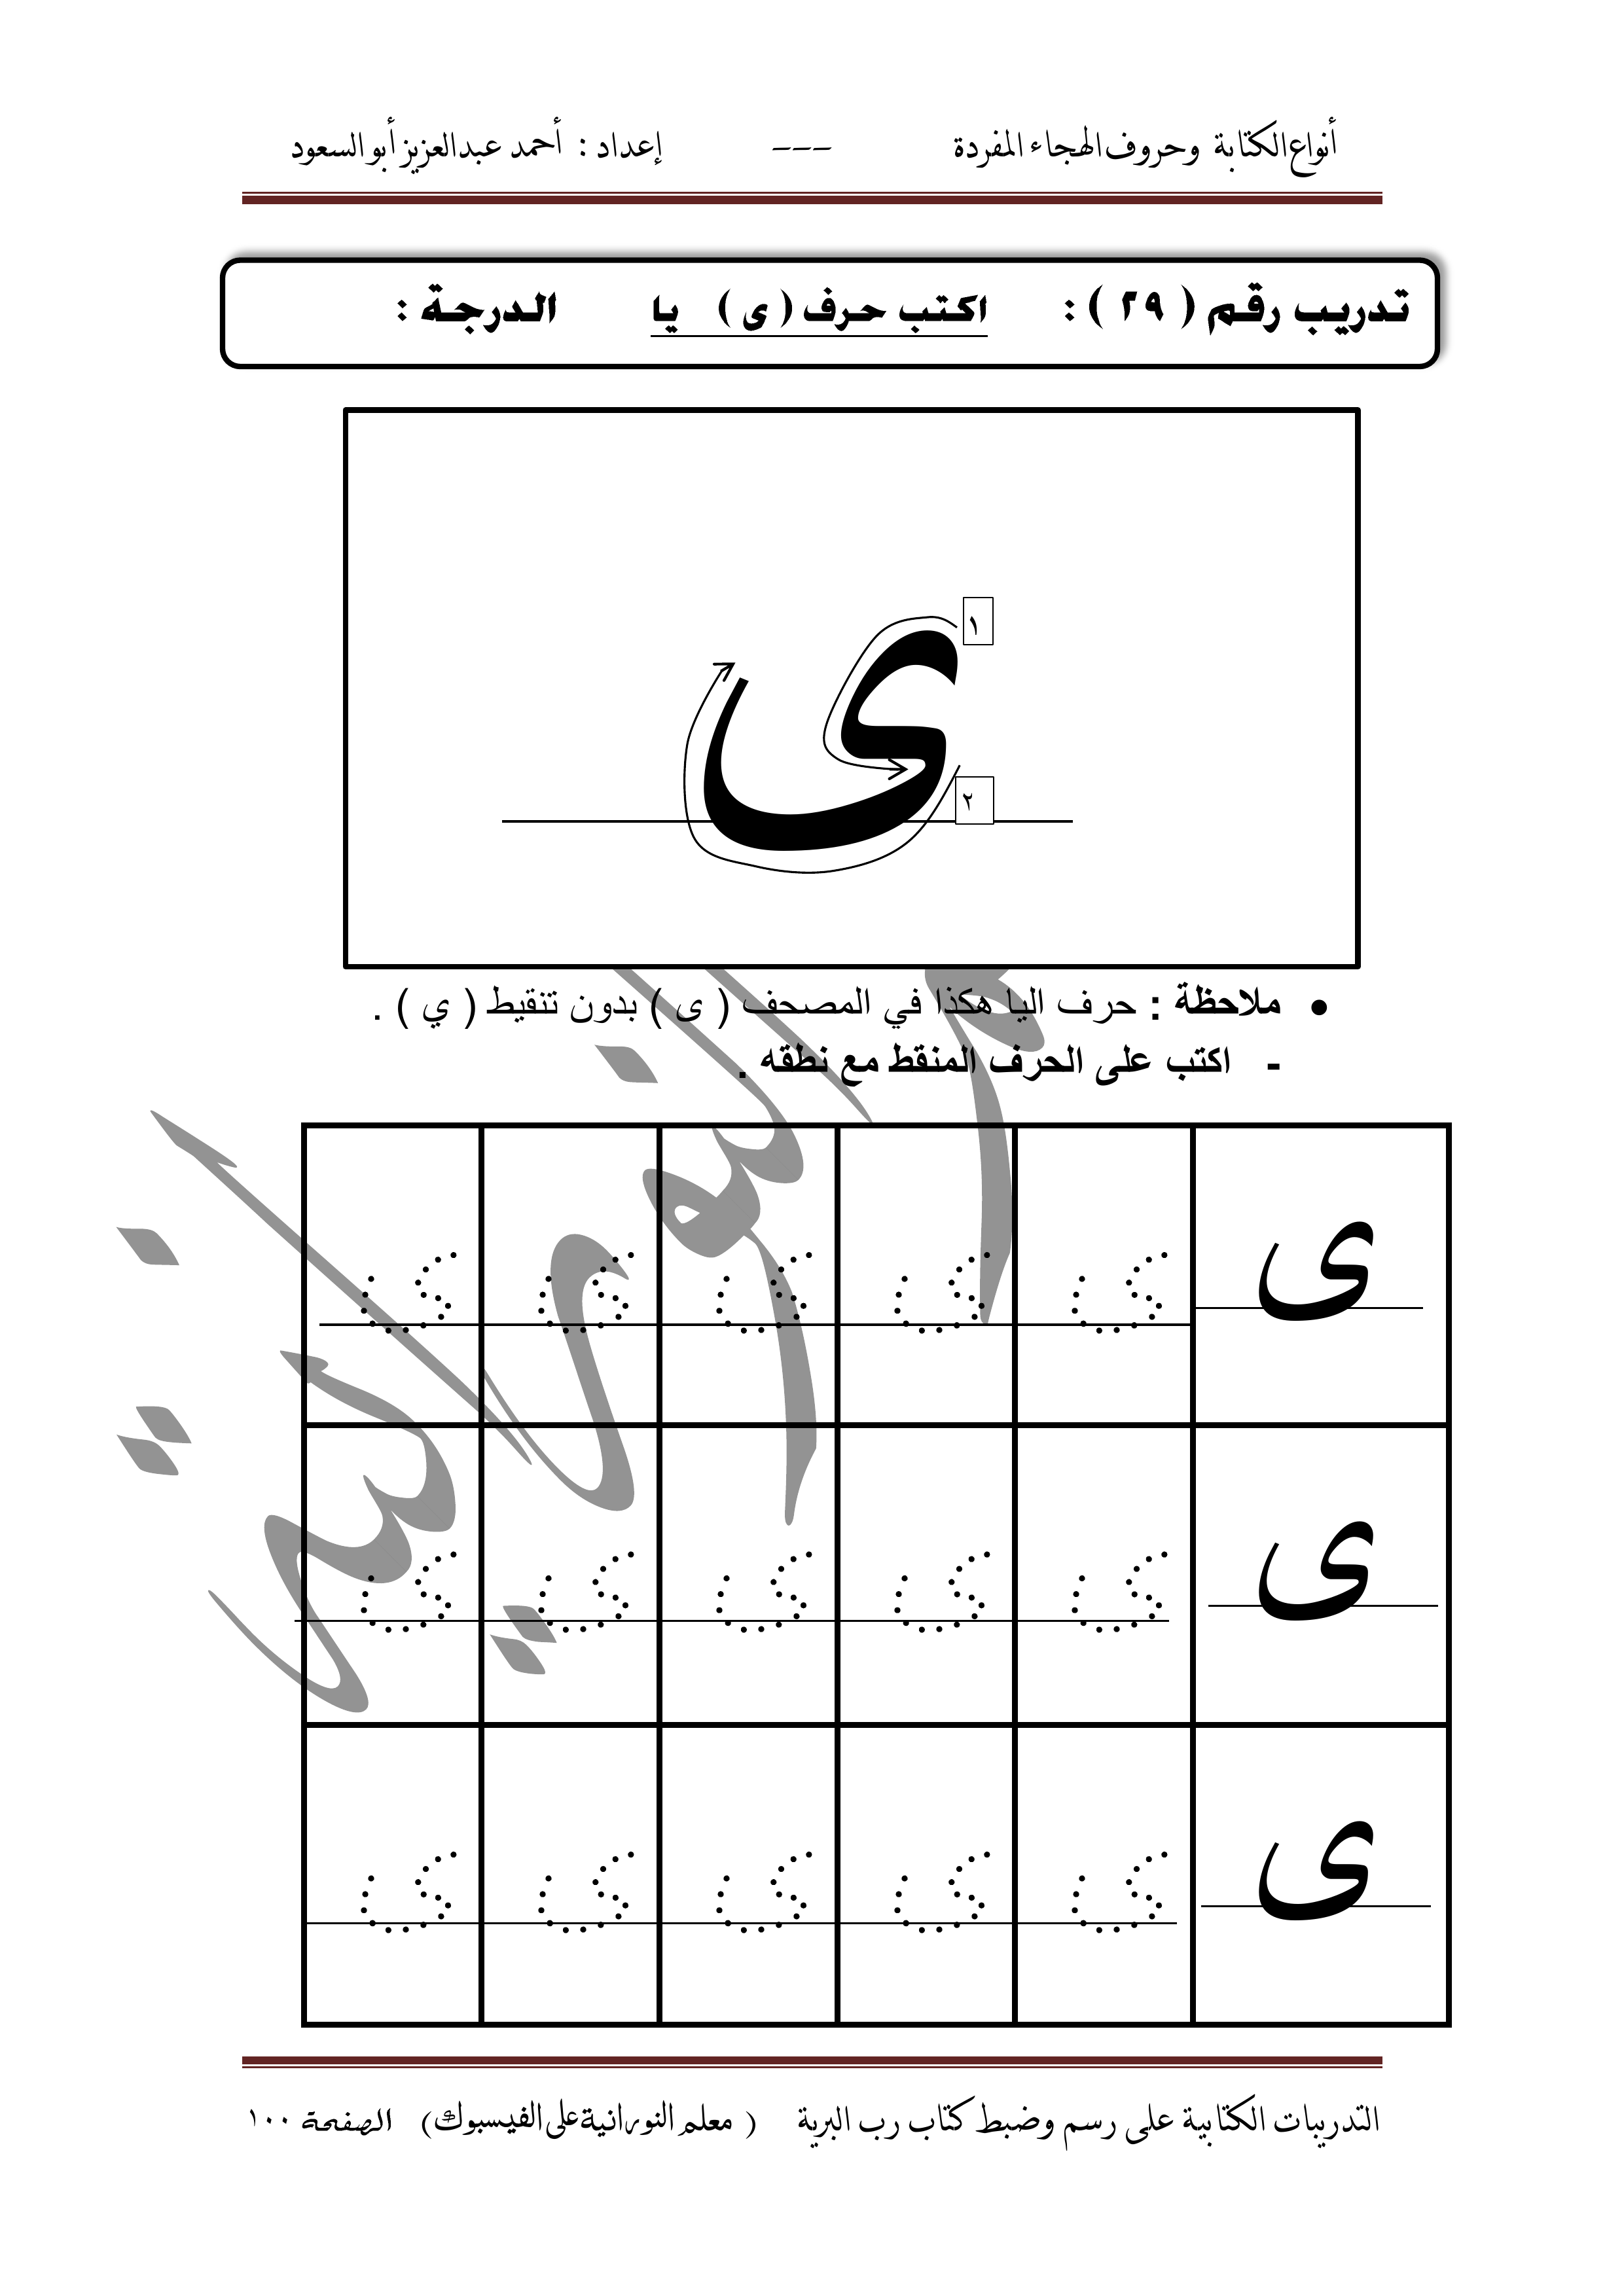 أنواع الكتابة وحروف الهجاء المفردة --- إعداد : أحمد عبدالعزيز أبو السعود
تدريب رقم ( ٢٩ ) : اكتب حرف ( ى ) يا الدرجة :
١
ى
٢
• ملاحظة : حرف اليا هكذا في المصحف ( ى ) بدون تنقيط ( ي ) .
- اكتب على الحرف المنقط مع نطقه .
ى ى ى ى ى ى
ى ى ى ى ى ى
ى ى ى ى ى ى
التدريبات الكتابية على رسم وضبط كتاب رب البرية ( معلم النورانية على الفيسبوك) الصفحة ١٠٠